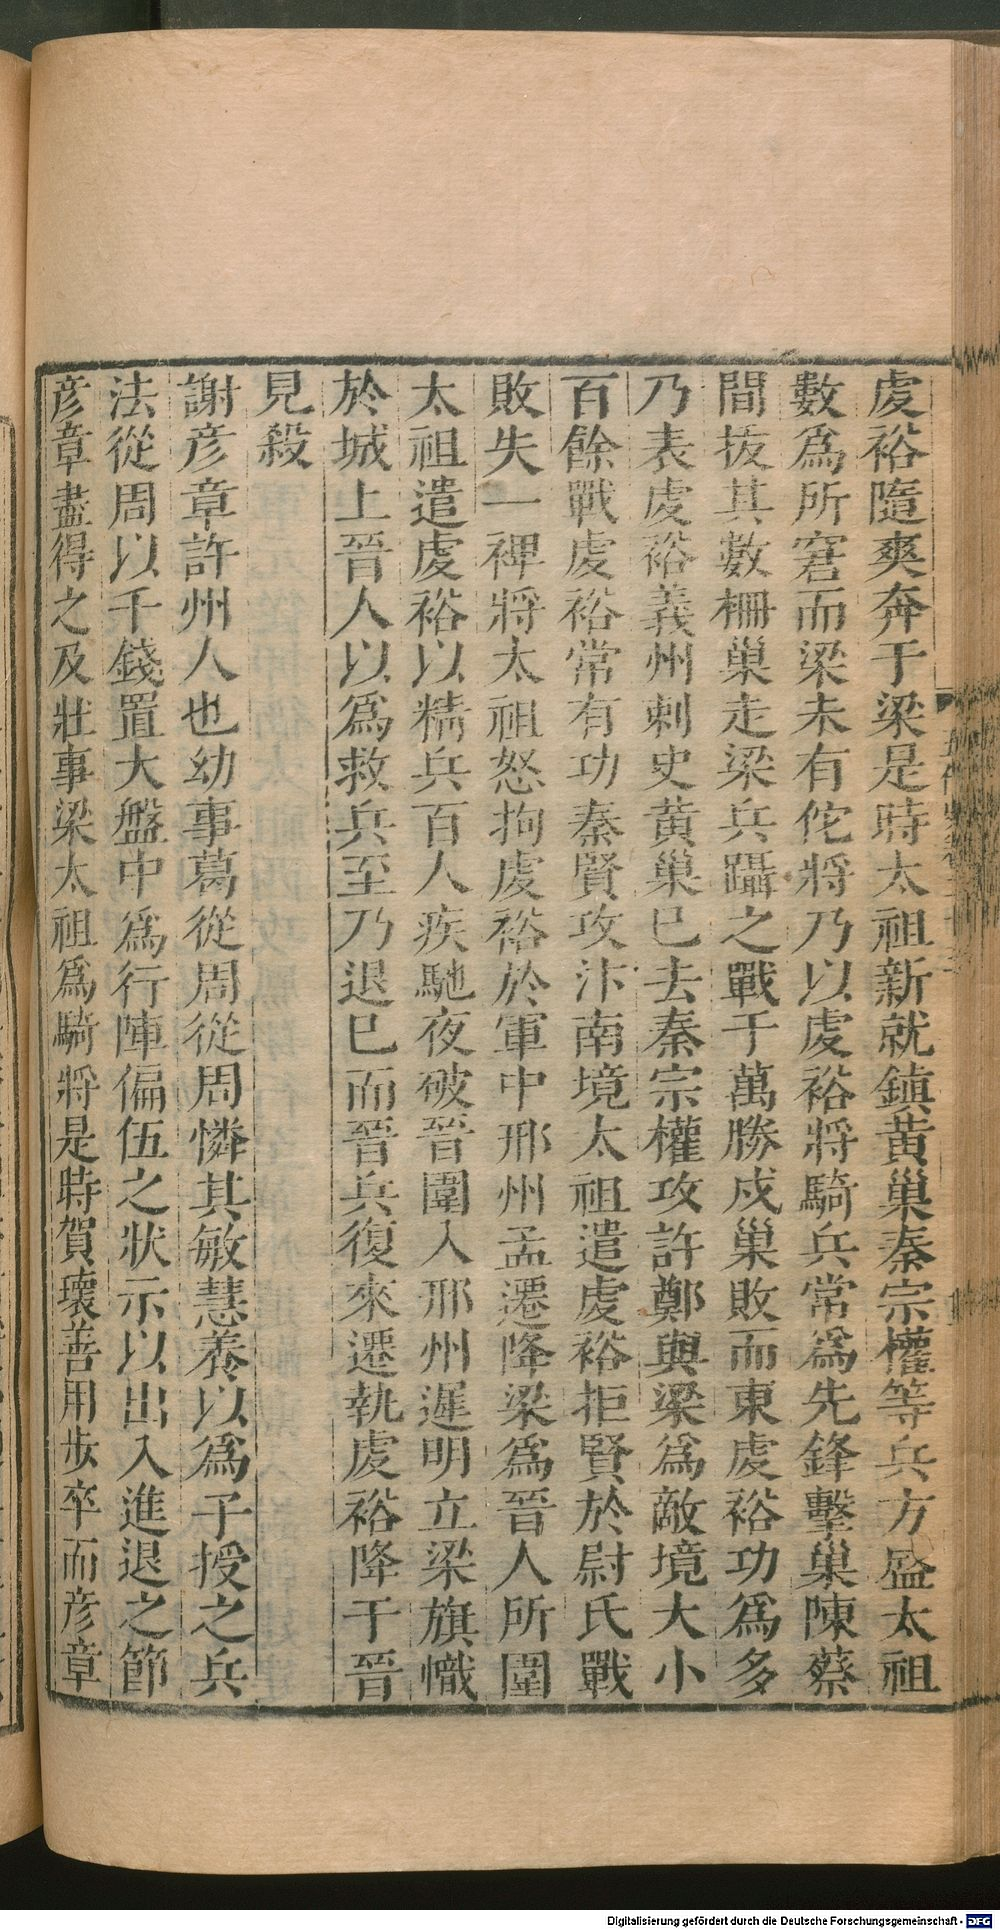 虔裕隨爽奔于梁是時太祖新就鎮黃巢秦宗權等兵方盛太祖
數爲所窘而梁未有佗將乃以虔裕將騎兵常爲先鋒擊巢陳蔡
間拔其數柵巢走梁兵躡之戰于萬勝戍巢敗而東虔裕功爲多
乃表虔裕義州刺史黃巢已去秦宗權攻許鄭與梁爲敵境大小
百餘戰虔裕常有功秦賢攻汴南境太祖遣虔裕拒賢於尉氏戰
敗失一裨將太祖怒拘虔裕於軍中邢州孟遷降梁爲晉人所圍
太祖遣虔裕以精兵百人疾馳夜破晉圍入邢州遲明立梁旗幟
於城上晉人以爲救兵至乃退已而晉兵復來遷執虔裕降于晉
見殺
謝彥章許州人也幼事葛從周從周憐其敏慧養以爲子授之兵
法從周以千錢置大盤中爲行陣偏伍之狀示以出入進退之節
彥章盡得之及壯事梁太祖爲騎將是時賀瓌善用步卒而彥章
Digitalisierung gefördert durch die Deutsche Forschungsgemeinschaft - DFG